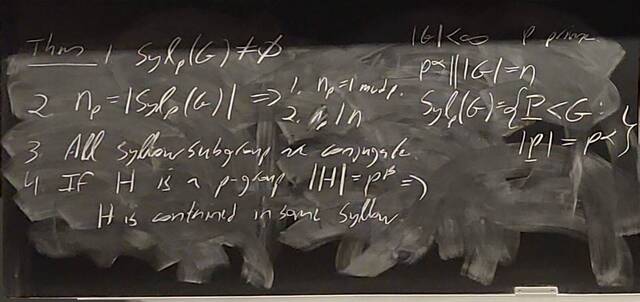 Thm 1 Syl_p(G) ≠ ∅
2 n_p = |Syl_p(G)| ⇒ 1. n_p ≡ 1 mod p.
2. n_p | n
3. All syllow subgroup are conjugate.
4. If H is a p-group |H| = p^β ⇒
H is contained in some Syllow.
|G| < ∞ p prime.
p^α || |G| = n
Syl_p(G) = { P < G :
|P| = p^α }